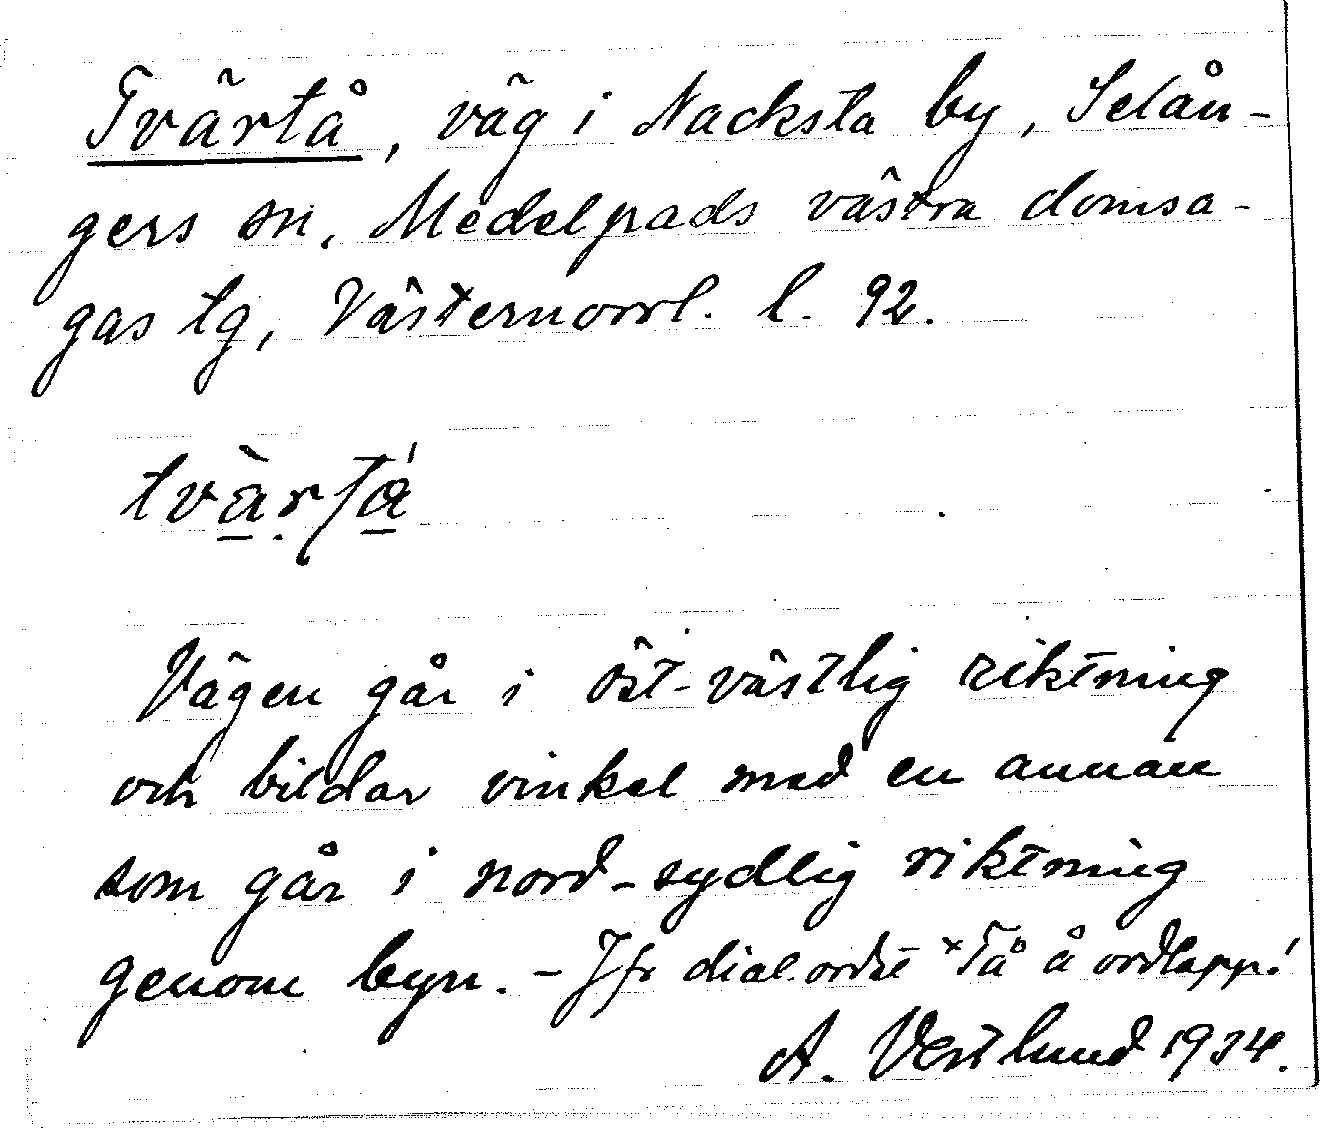 Tvärtå, väg i Nacksta by, Selån-
gers sn, Medelpads västra domsa-
gas tg, Västernorrl. l. 92.
tvà̱ṛtá̱
Vägen går i öst-västlig riktning
och bildar vinkel med en annan
som går i nord-sydlig riktning
genom byn. - Jfr dial.ordet *Tå å ordlapp!
A. Vestlund 1934.